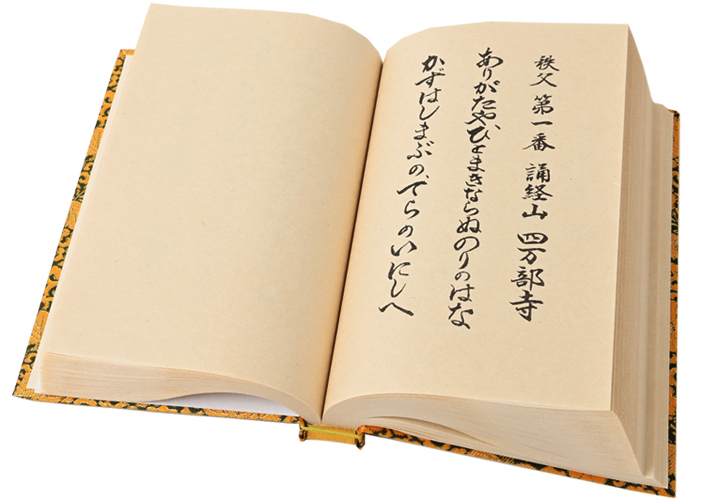 秩父 第一番 誦経山 四万部寺
ありがたやひとまきならぬのりのはな
かずはしまぶのでらのいにしへ